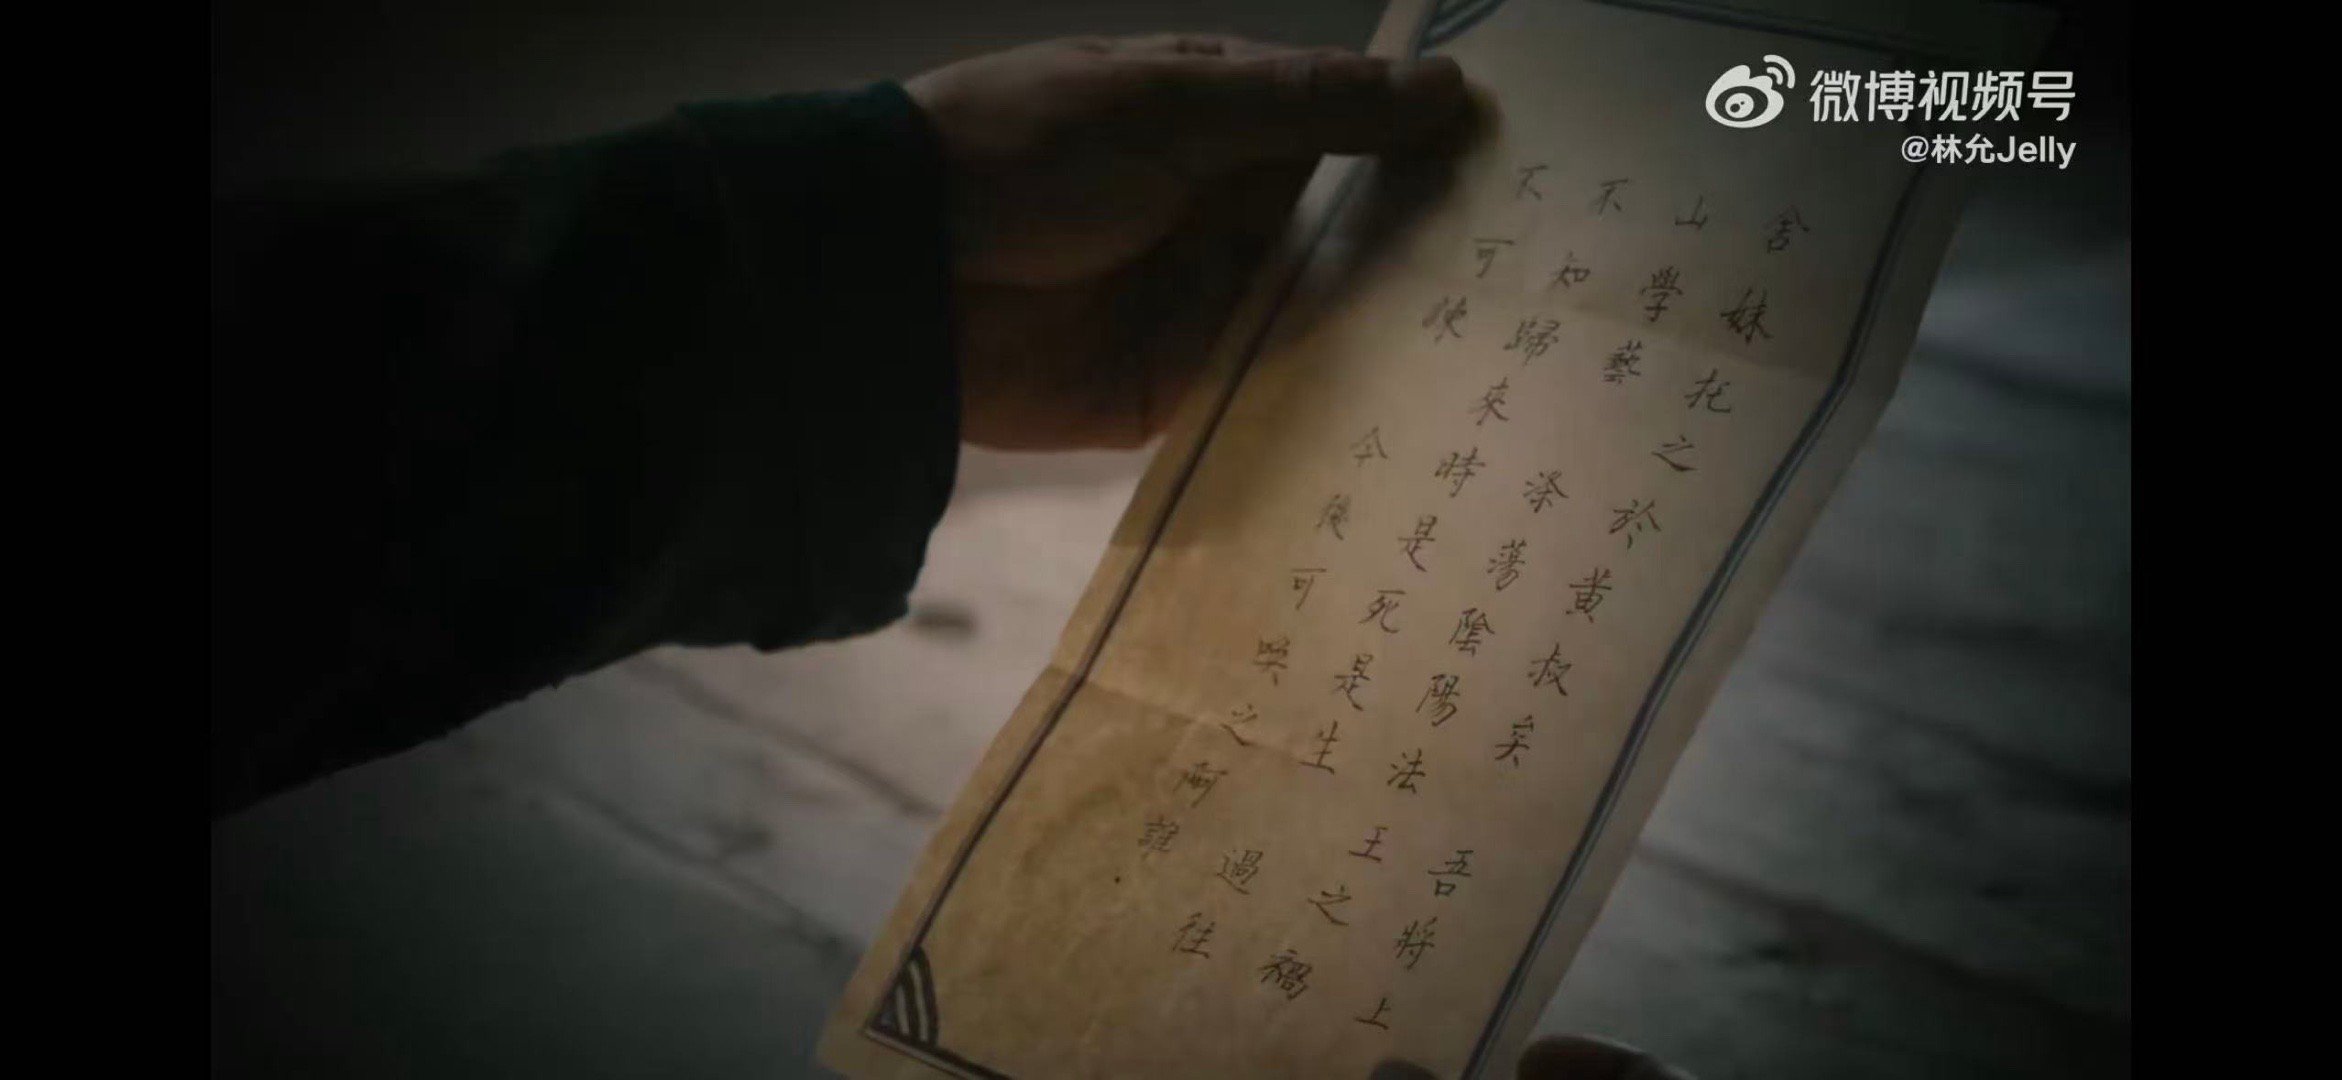 舍妹托之於黄叔矣 吾將上
山學藝 涤蕩陰陽法王之禍
不知歸來時是死是生 過往
不可 今後可 之 誰
微博视频号
@林允Jelly